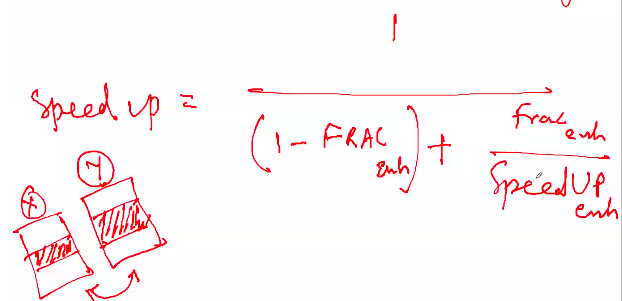 1
Speed up = (1 - FRAC enh) + Frac enh
SpeedUP enh
X
Y